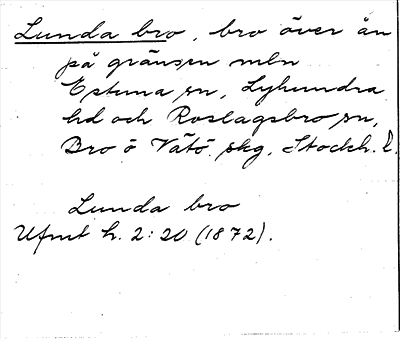 Lunda bro, bro över ån
på gränsen mln
Estuna sn, Lyhundra
hd och Roslagsbro sn,
Bro o Vätö skg, Stockh. l.
Lunda bro
Ufmt h. 2:20 (1872).